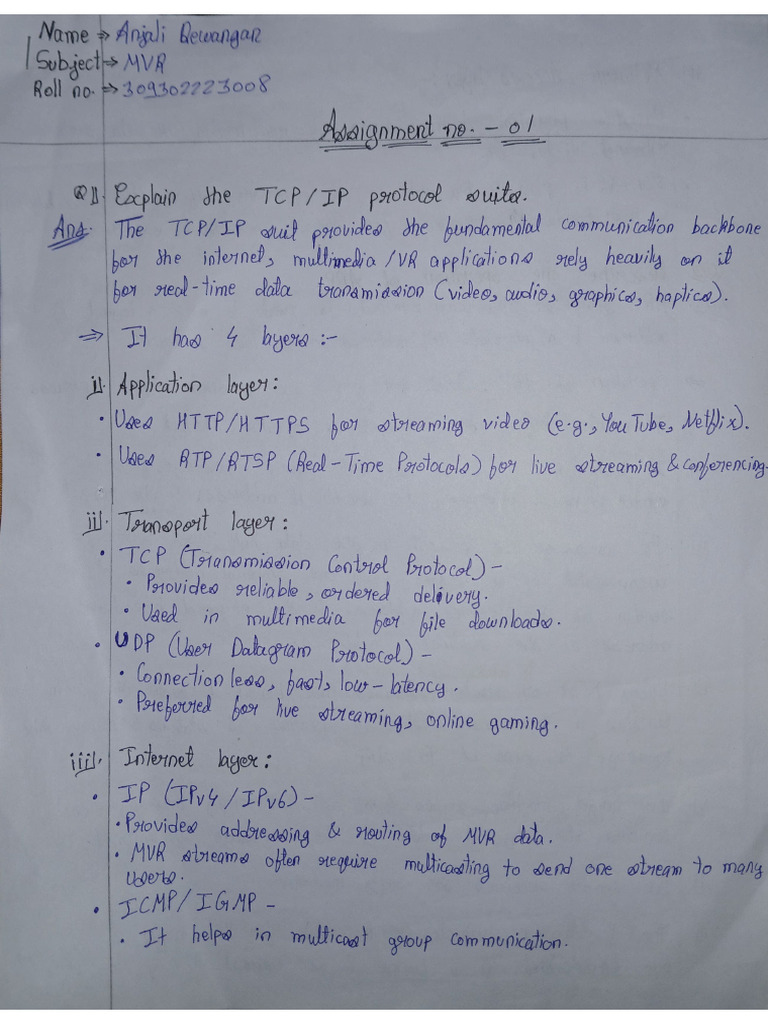 Name → Anjali Dewangan
Subject → MVR
Roll no. → 309302223008
Assignment no. - 01
Q1. Explain the TCP/IP protocol suite.
Ans. The TCP/IP suit provides the fundamental communication backbone
for the internet, multimedia/VR applications rely heavily on it
for real-time data transmission (video, audio, graphics, haptics).
⇒ It has 4 layers :-
i). Application layer:
• Uses HTTP/HTTPS for streaming video (e.g., YouTube, Netflix).
• Uses RTP/RTSP (Real-Time Protocols) for live streaming & conferencing.
ii). Transport layer:
• TCP (Transmission Control Protocol) -
• Provides reliable, ordered delivery.
• Used in multimedia for file downloads.
• UDP (User Datagram Protocol) -
• Connection less, fast, low-latency.
• Preferred for live streaming, online gaming.
iii). Internet layer:
• IP (IPv4/IPv6) -
• Provides addressing & routing of MVR data.
• MVR streams often require multicasting to send one stream to many
users.
• ICMP/IGMP -
• It helps in multicast group communication.